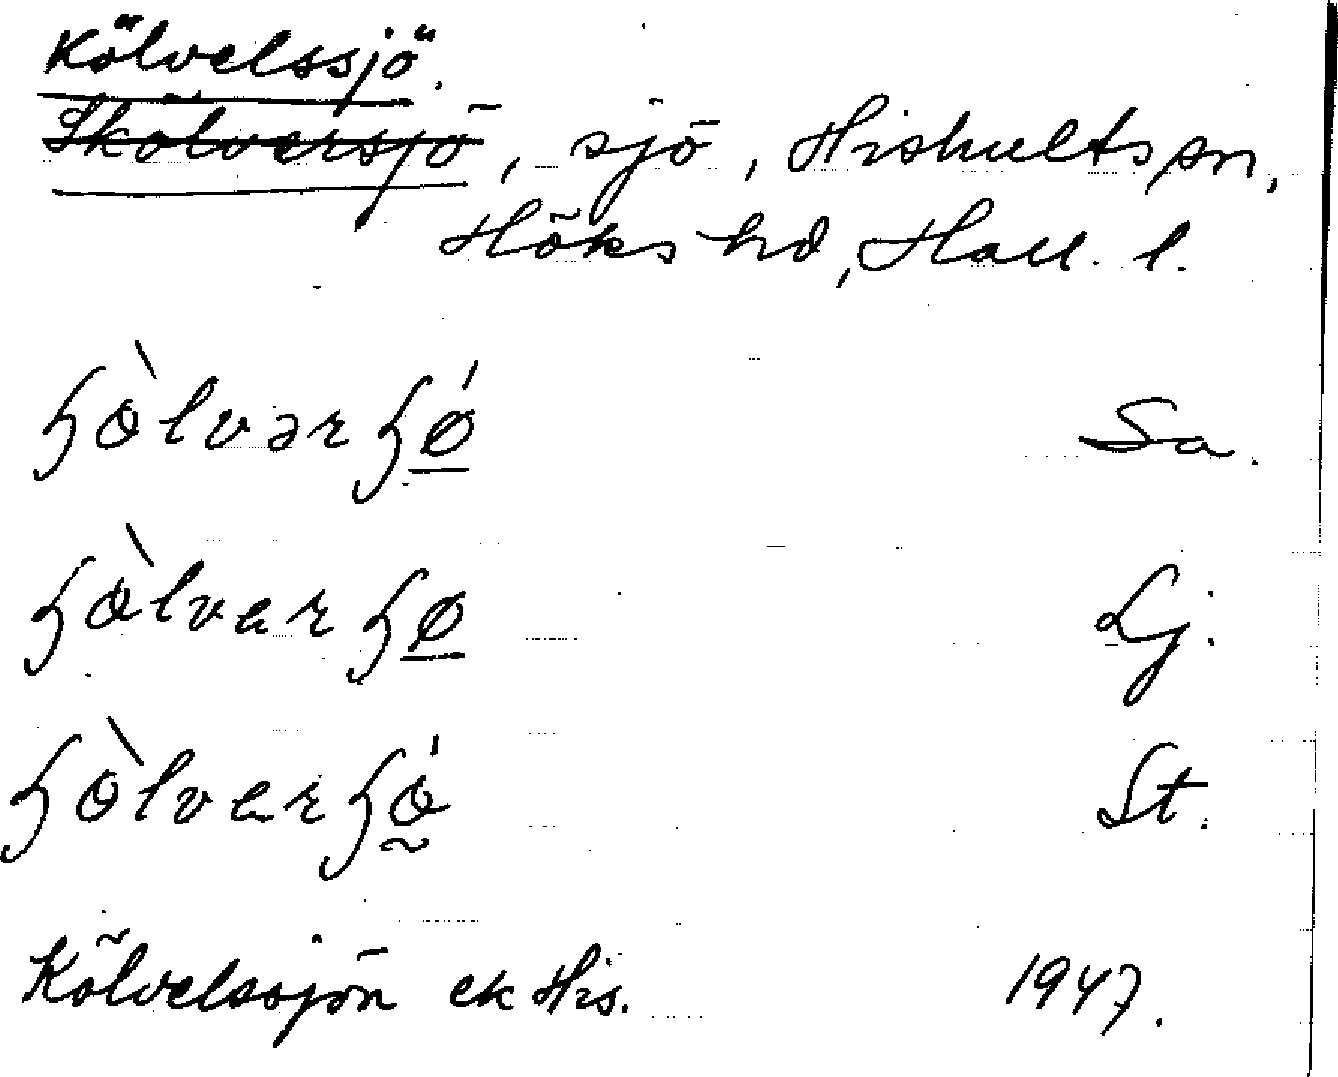 Kölvelssjö.
Skölversjö, sjö, Hishults sn,
Höks hd, Hall. l.
ɧòlvərɧǿ Sa.
ɧòlvarɧø Lj.
ɧòlvarɧó St.
Kölvelssjön ek His. 1947.